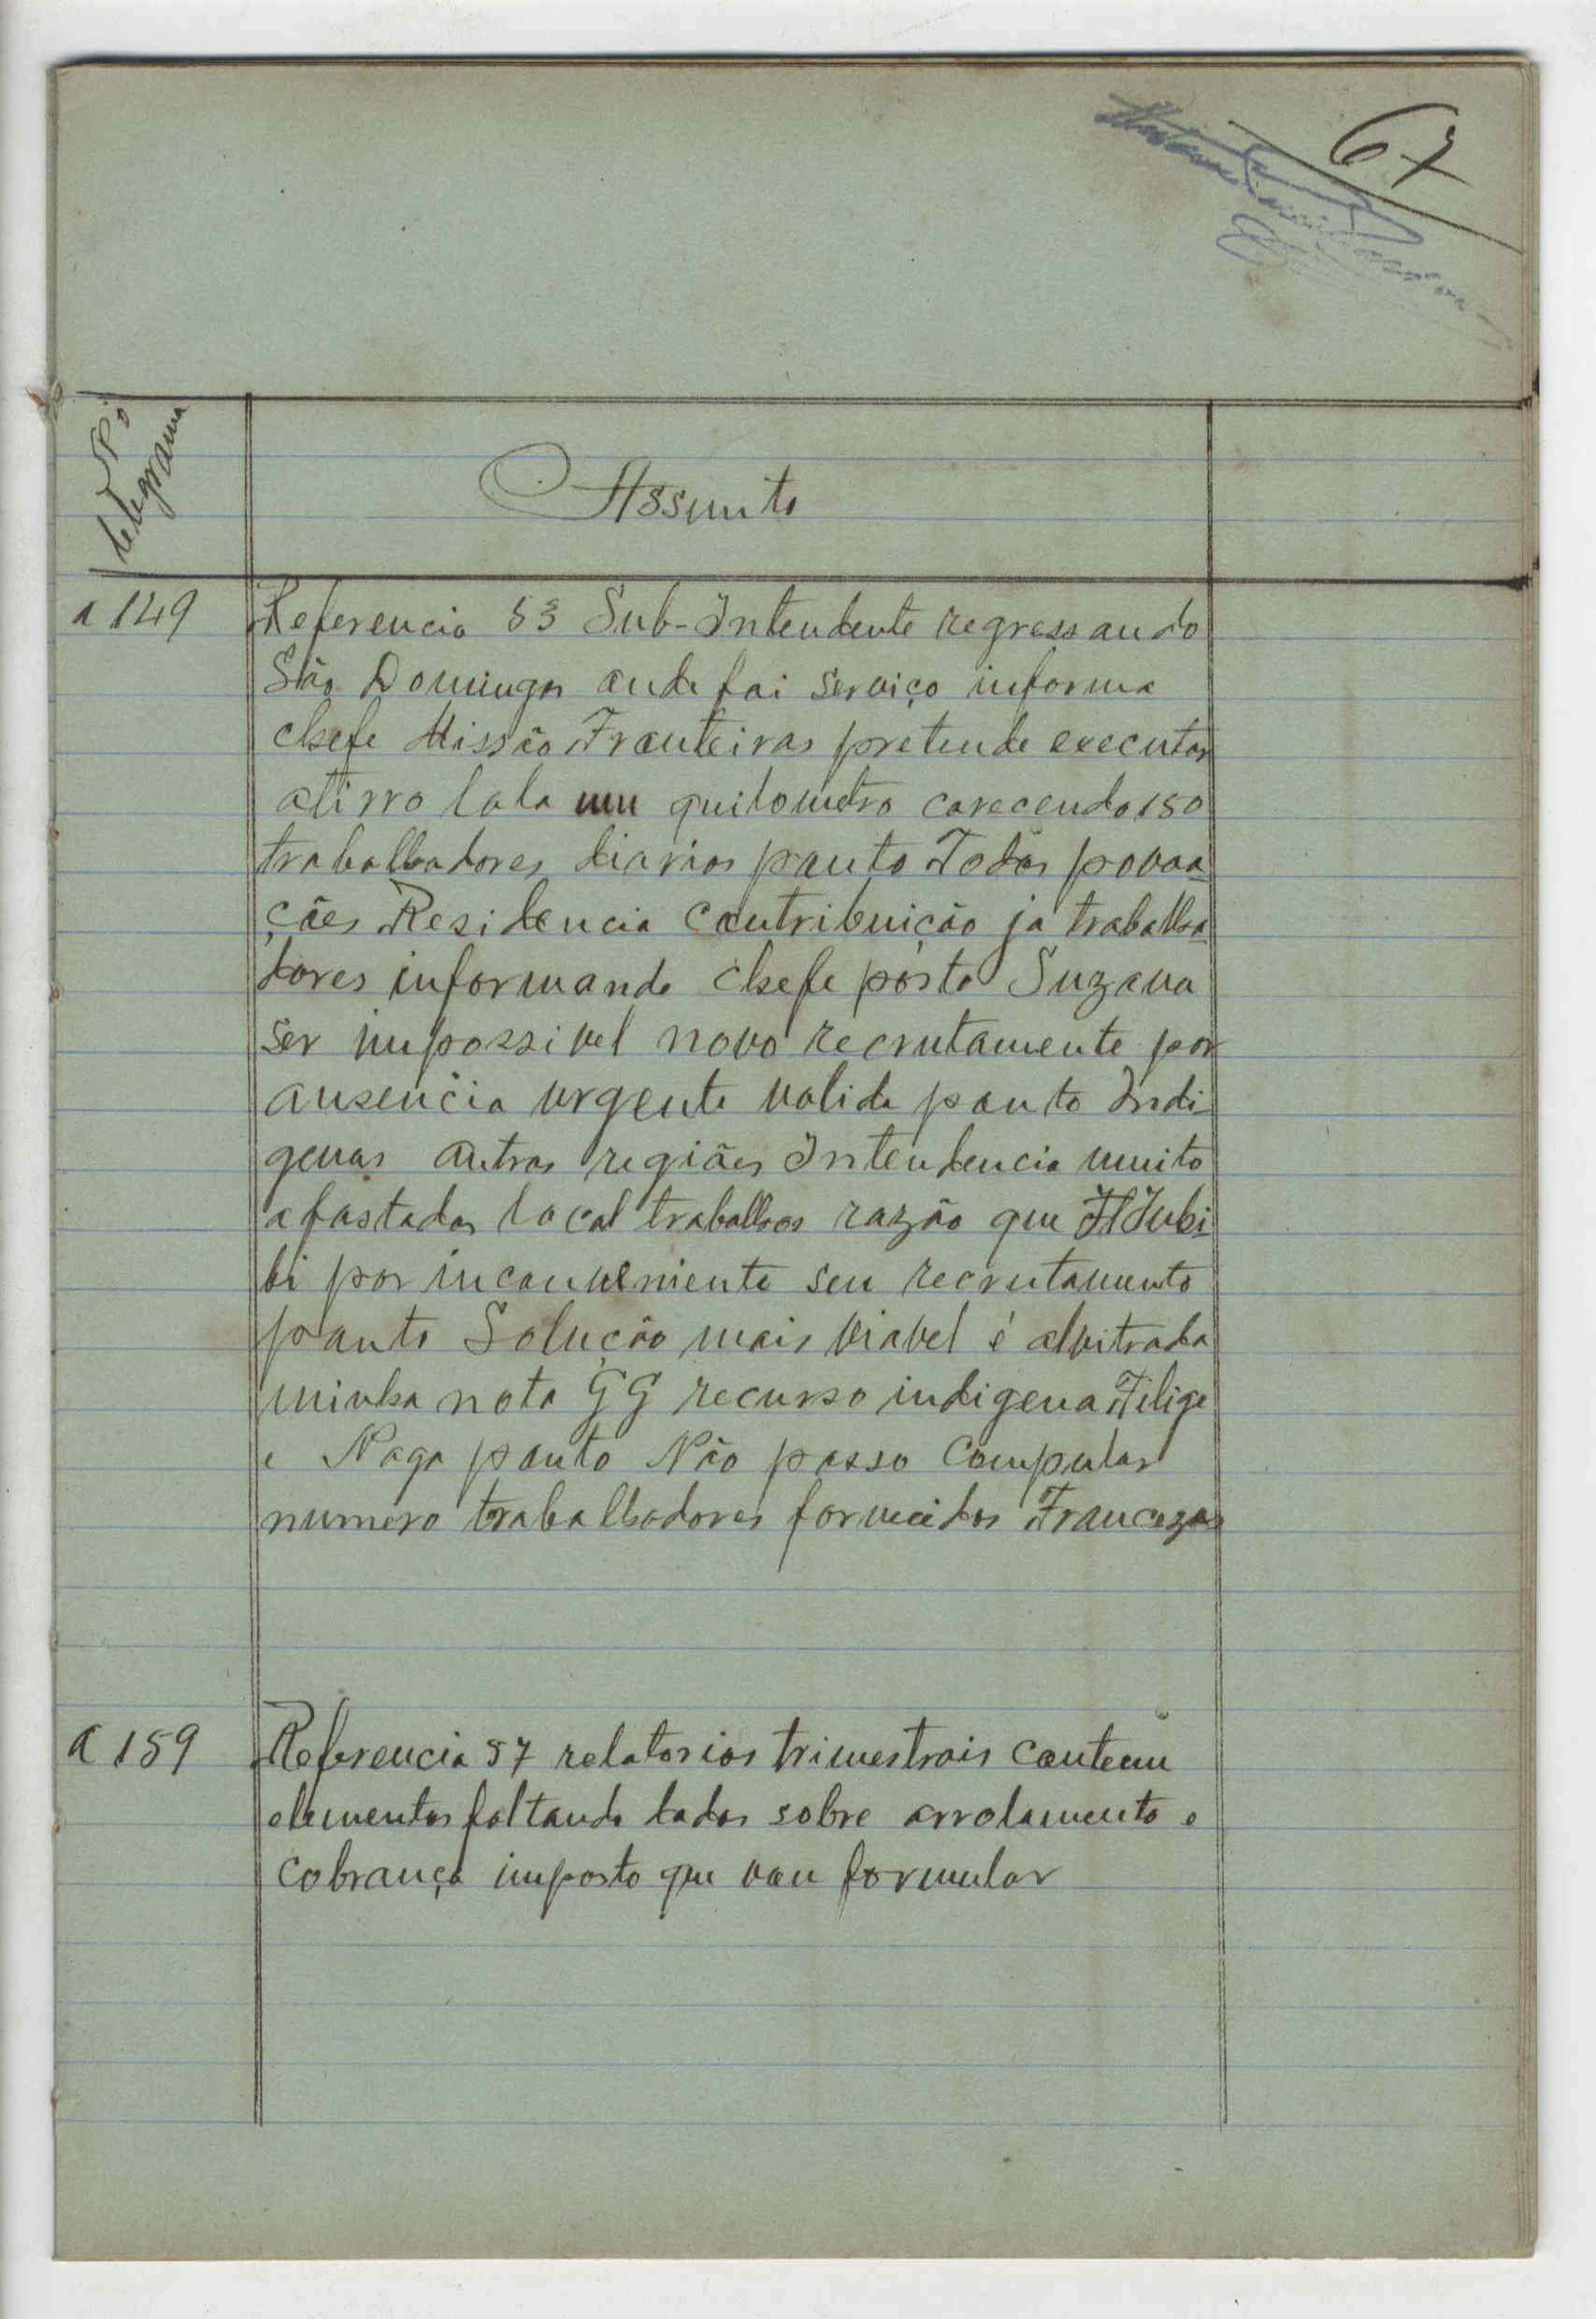 67
Nº
telegrama
Assunto
a 149
Referencia 53 Sub-Intendente regressando
São Domingos onde foi serviço informa
chefe Missão Fronteiras pretende executar
atirro lala um quilometro carecendo 150
trabalhadores diarios ponto Todas povoa-
ções Residencia contribuição ja trabalha-
dores informando chefe pôsto Suzana
ser impossivel novo recrutamente por
ausencia urgente valida ponto Indi-
genas outras regiões Intendencia muito
afastados local trabalhos razão que
bi por inconveniente seu recrutamento
ponto Solução mais viavel é alvitrada
minha nota GG recurso indigena Filige
e Naga ponto Não posso Compular
numero trabalhadores fornecidos Francezas
a 159
Referencia 57 relatorios trimestrais contem
elementos faltando dados sobre arrolamento e
cobrança imposto que vou formular